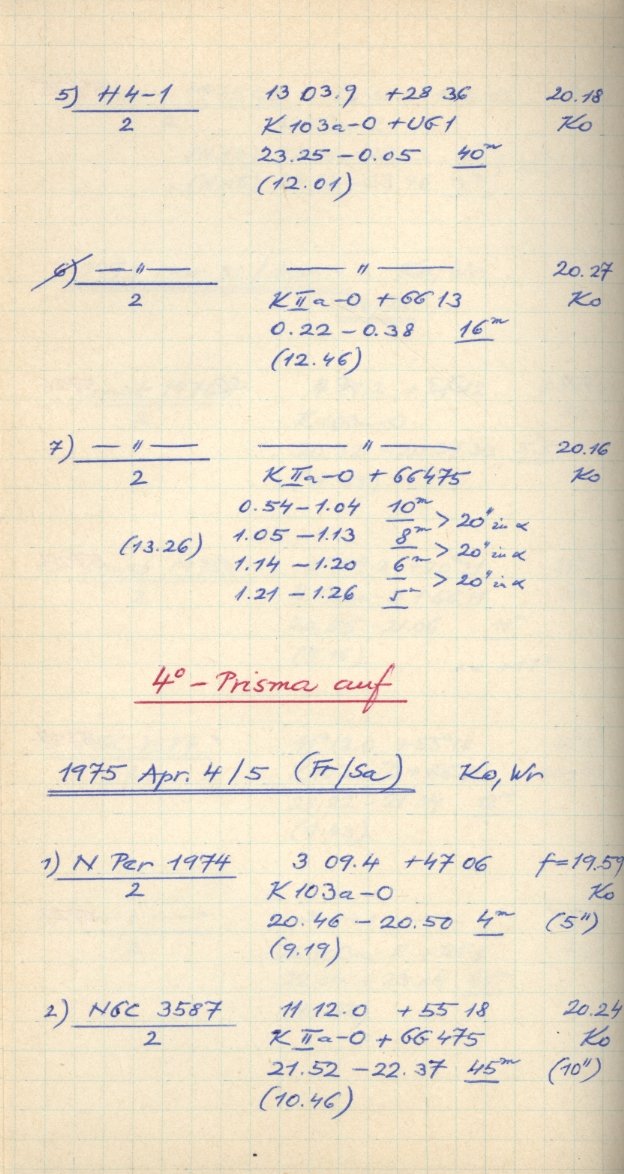 5) H4-1 13 03.9 +28 36 20.18
2 K 103a-O + UG1 Ko
23.25 – 0.05 40ᵐ
(12.01)
6) — " — — " — 20.27
2 K IIa-O + GG 13 Ko
0.22 – 0.38 16ᵐ
(12.46)
7) — " — — " — 20.16
2 K IIa-O + GG475 Ko
0.54 – 1.04 10ᵐ
> 20" in α
1.05 – 1.13 8ᵐ
(13.26)
> 20" in α
1.14 – 1.20 6ᵐ
> 20" in α
1.21 – 1.26 5ᵐ
4° – Prisma auf
1975 Apr. 4/5 (Fr/Sa) Ko, Wr
1) N Per 1974 3 09.4 +47 06 f=19.59
2 K 103a-O Ko
20.46 – 20.50 4ᵐ (5")
(9.19)
2) NGC 3587 11 12.0 +55 18 20.24
2 K IIa-O + GG475 Ko
21.52 – 22.37 45ᵐ (10")
(10.46)